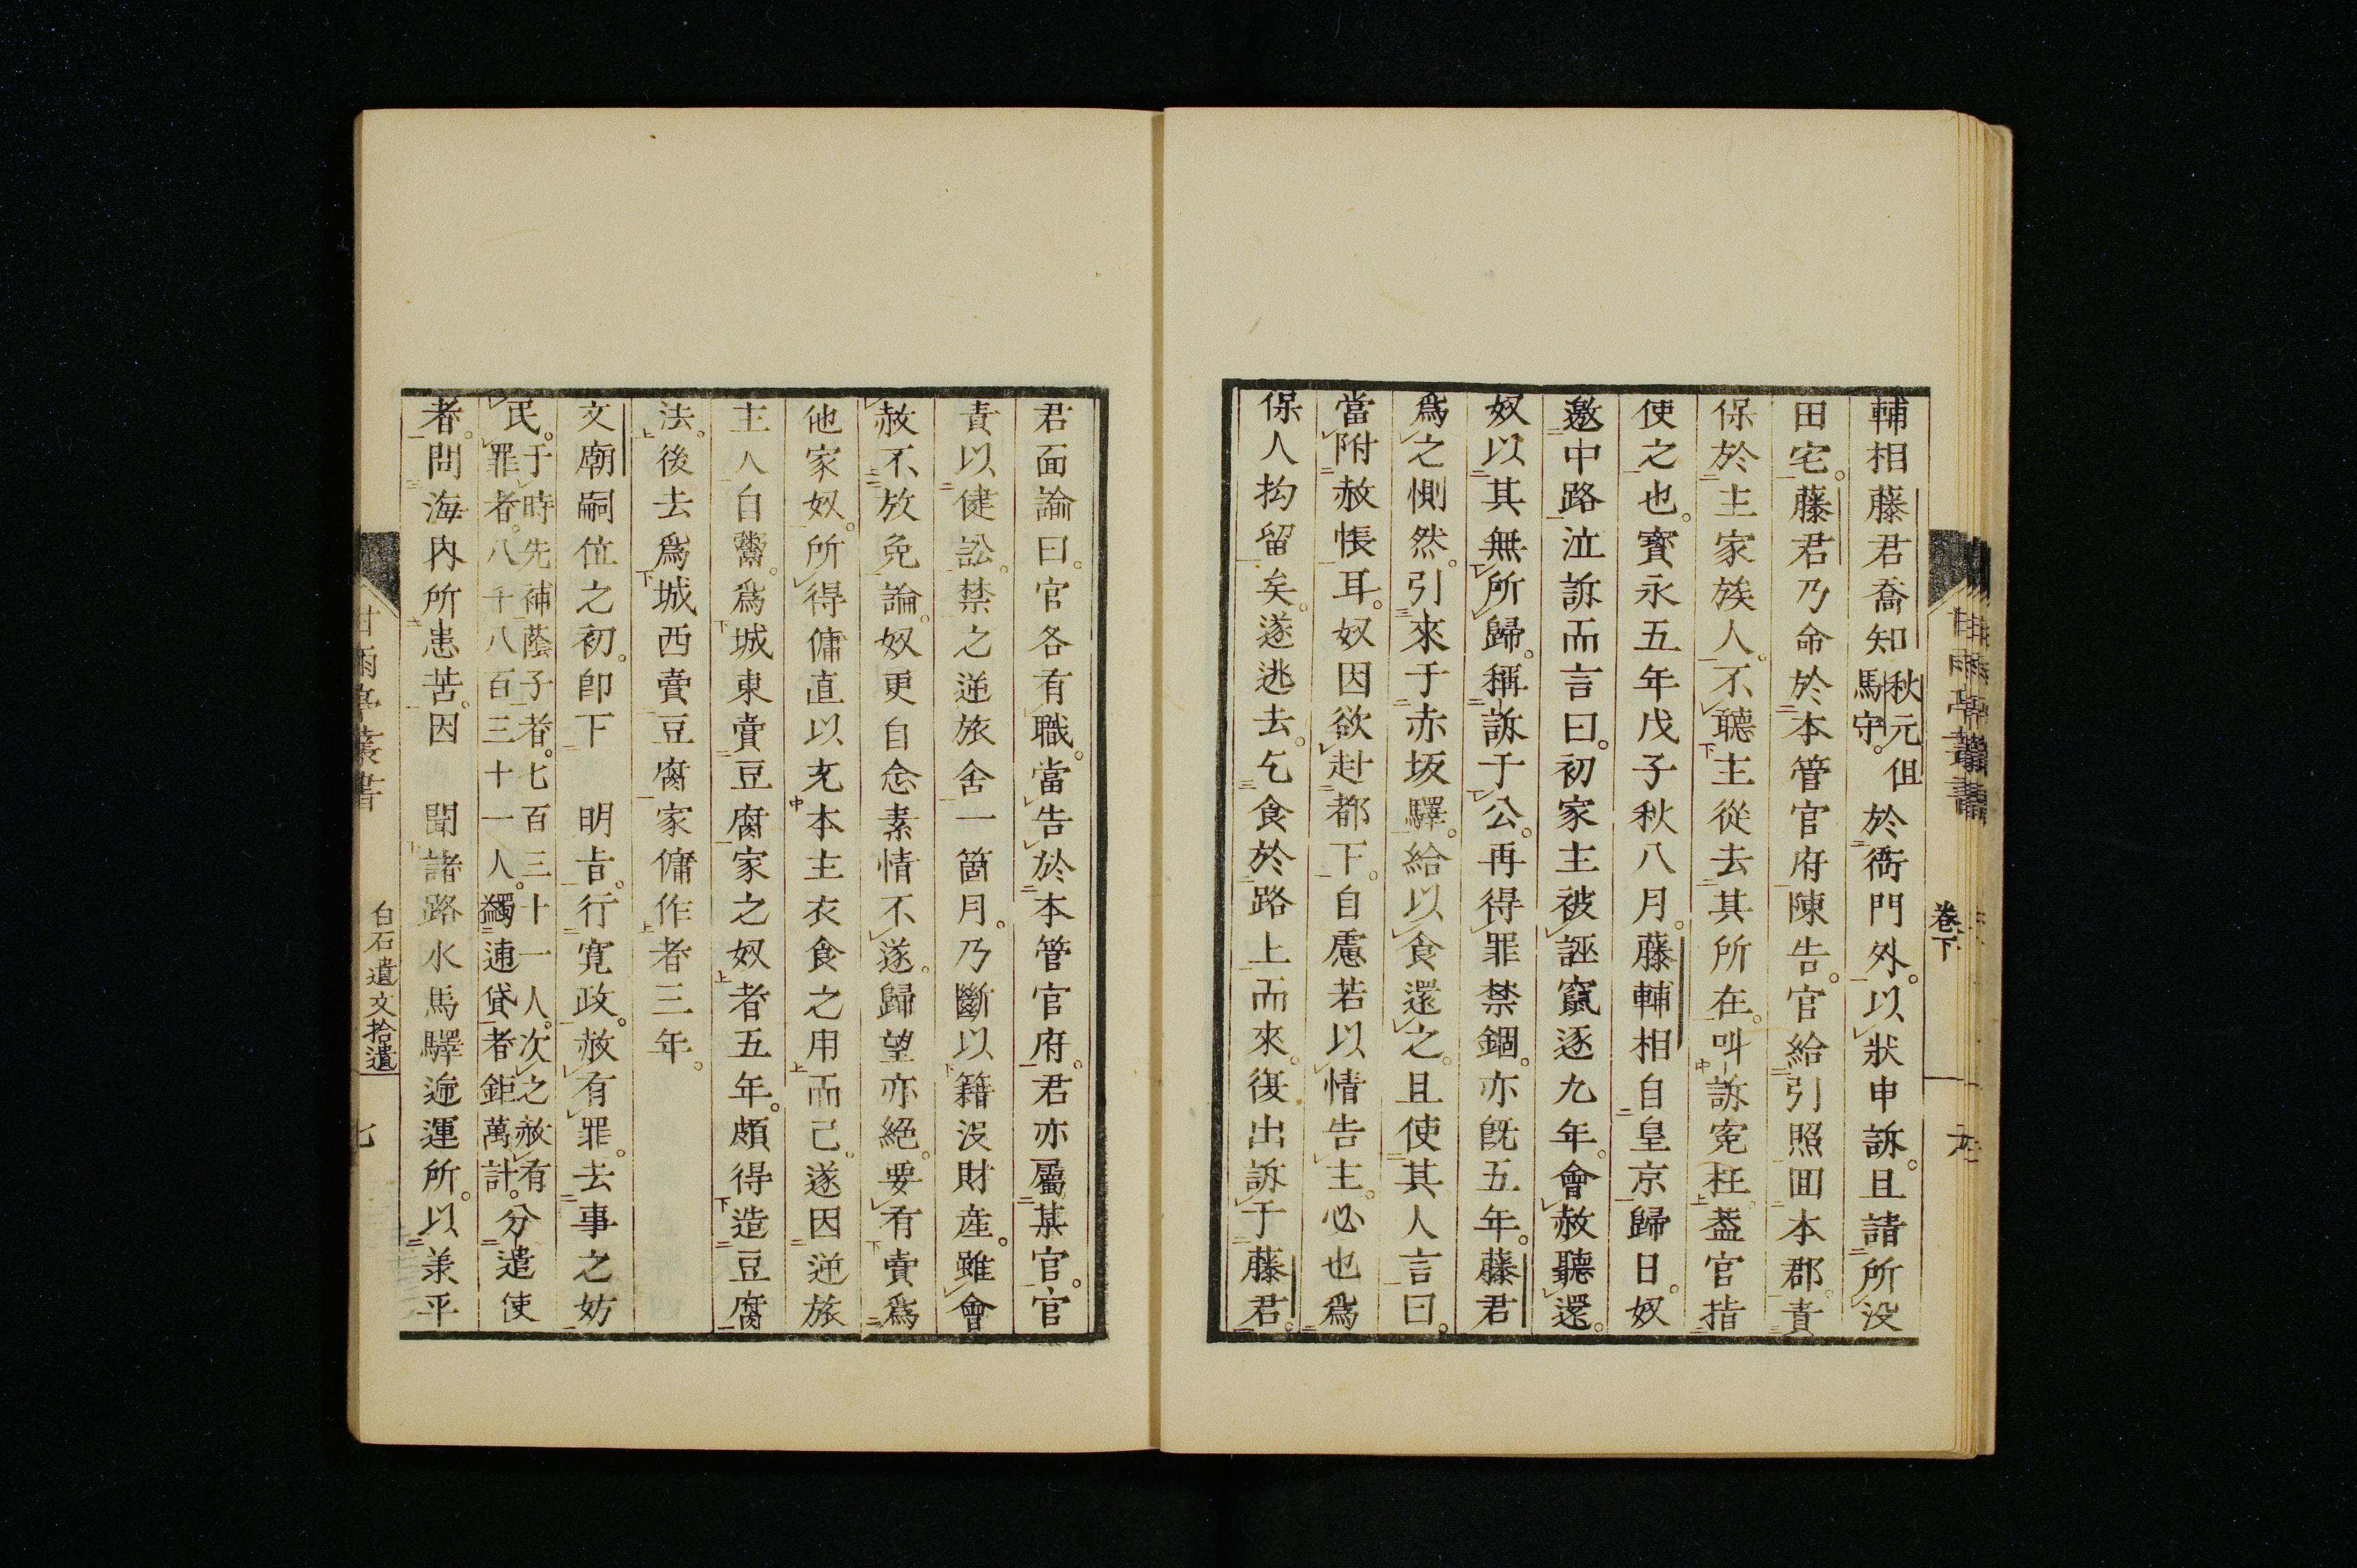 輔相藤君喬知秋元但馬守。於衙門外。以狀申訴。且請所没
田宅。藤君乃命於本管官府陳告。官給引照回本郡。責
保於主家族人。不聽主從去其所在。叫訴寃枉。葢官指
使之也。寳永五年戊子秋八月。藤輔相自皇京歸日。奴
邀中路泣訴而言曰。初家主被誣竄逐九年。會赦聽還。
奴以其無所歸。稱訴于公。再得罪禁錮。亦旣五年。藤君
爲之惻然。引來于赤坂驛。給以食還之。且使其人言曰。
當附赦帳耳。奴因欲赴都下。自慮若以情告主。必也爲
保人拘留矣。遂逃去。乞食於路上而來。復出訴于藤君。
卷下
君面諭曰。官各有職。當告於本管官府。君亦屬某官。官
責以健訟。禁之逆旅舍一箇月。乃斷以籍没財産。雖會
赦不放免論。奴更自念素情不遂。歸望亦絕。要有賣爲
他家奴。所得傭直以充本主衣食之用而已。遂因逆旅
主人自鬻。爲城東賣豆腐家之奴者五年。頗得造豆腐
法。後去爲城西賣豆腐家傭作者三年。
文廟嗣位之初。卽下　明旨。行寛政。赦有罪。去事之妨
民。于時先補蔭子者。七百三十一人。次之赦有罪者。八千八百三十一人。蠲逋貸者鉅萬計。分遣使
者。問海內所患苦。因　聞諸路水馬驛遞運所。以羕平
甘雨亭叢書
白石遺文拾遺
七